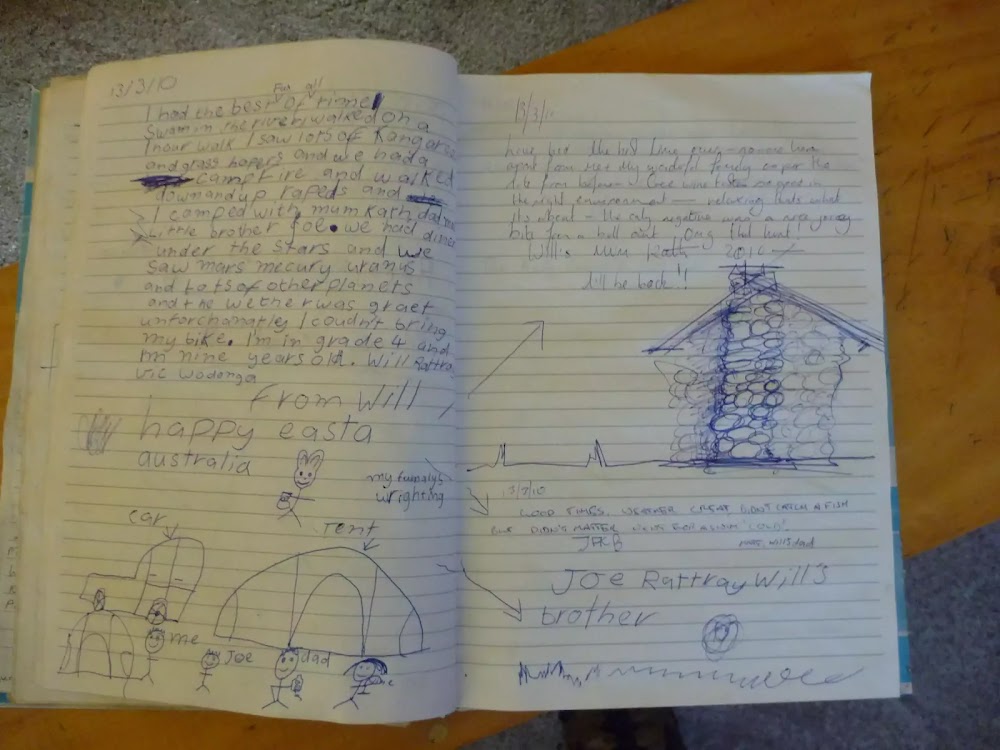 13/3/10
For all
I had the best of times
Swam in the river, walked on a
1 hour walk I saw lots of Kangaroos
and grass hopers and we had a
camp fire and walked
down and up rapeds and
I camped with mum Kath, dad
Little brother Joe. we had diner
under the stars and we
saw mars mecury uranus
and Lots of other planets
and the wether was graet
unforchanatley I coudn't bring
my bike. I'm in grade 4 and
nine years old. Will Rattray
Vic Wodonga
From Will
happy easta
australia
my famalys
wrighting
car
Tent
me
Joe
dad
13/3/10
have had the best time ever
apart from my wonderful family
wine
the right environment - relaxing thats what
its about - the only negative was a
bite from a bull ant - Omg that hurt!
Will's Mum Kath 2010
I'll be back!!
13/3/10
GOOD TIMES, WEATHER GREAT DIDN'T CATCH A FISH
BUT DIDN'T MATTER WENT FOR A SWIM 'COLD'!
wills dad
Joe Rattray Will's
brother